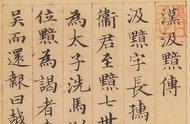 漢汲黯傳
汲黯字長孺
衛君至黯七世
為太子洗馬以
位黯為謁者
吳而還報曰越